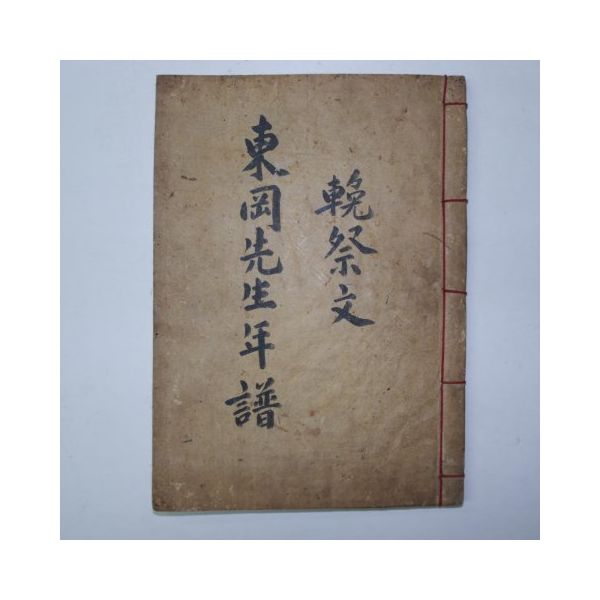 輓祭文
東岡先生年譜